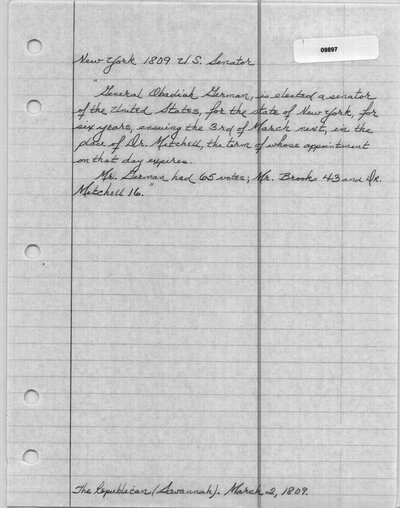 09897
New York 1809 U.S. Senator
"General Obadiah German, is elected a senator
of the United States, for the state of New York, for
six years, ensuing the 3rd of March next, in the
place of Dr. Mitchell, the term of whose appointment
on that day expires.
Mr. German had 65 votes; Mr. Brooks 43 and Dr.
Mitchell 16."
The Republican (Savannah). March 2, 1809.